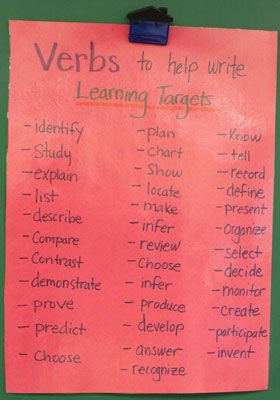 Verbs to help write
Learning Targets
- identify
- Study
- explain
- list
- describe
- Compare
- Contrast
- demonstrate
- prove
- predict
- Choose
- plan
- chart
- Show
- locate
- make
- infer
- review
- Choose
- infer
- produce
- develop
- answer
- recognize
- Know
- tell
- record
- define
- present
- organize
- select
- decide
- monitor
- create
- participate
- invent